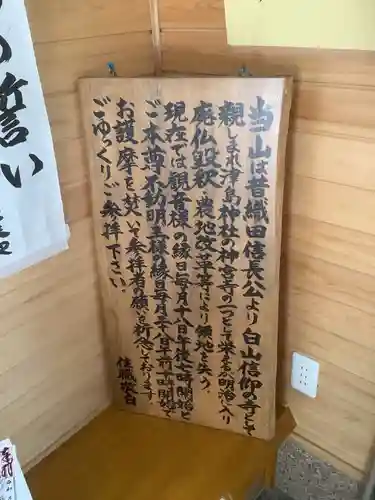 当山は昔織田信長公より白山信仰の寺として
親しまれ津島神社の神宮寺の一つとして栄えるも明治に入り
廃仏毀釈・農地改革等により領地を失う。
現在では観音様の縁日毎月十八日午後七時開始と
ご本尊不動明王様の縁日毎月二十八日午前十時開始にて
お護摩を焚いて参拝者の願いを祈念しております。
ごゆっくりご参拝下さい。
住職敬白
の誓い